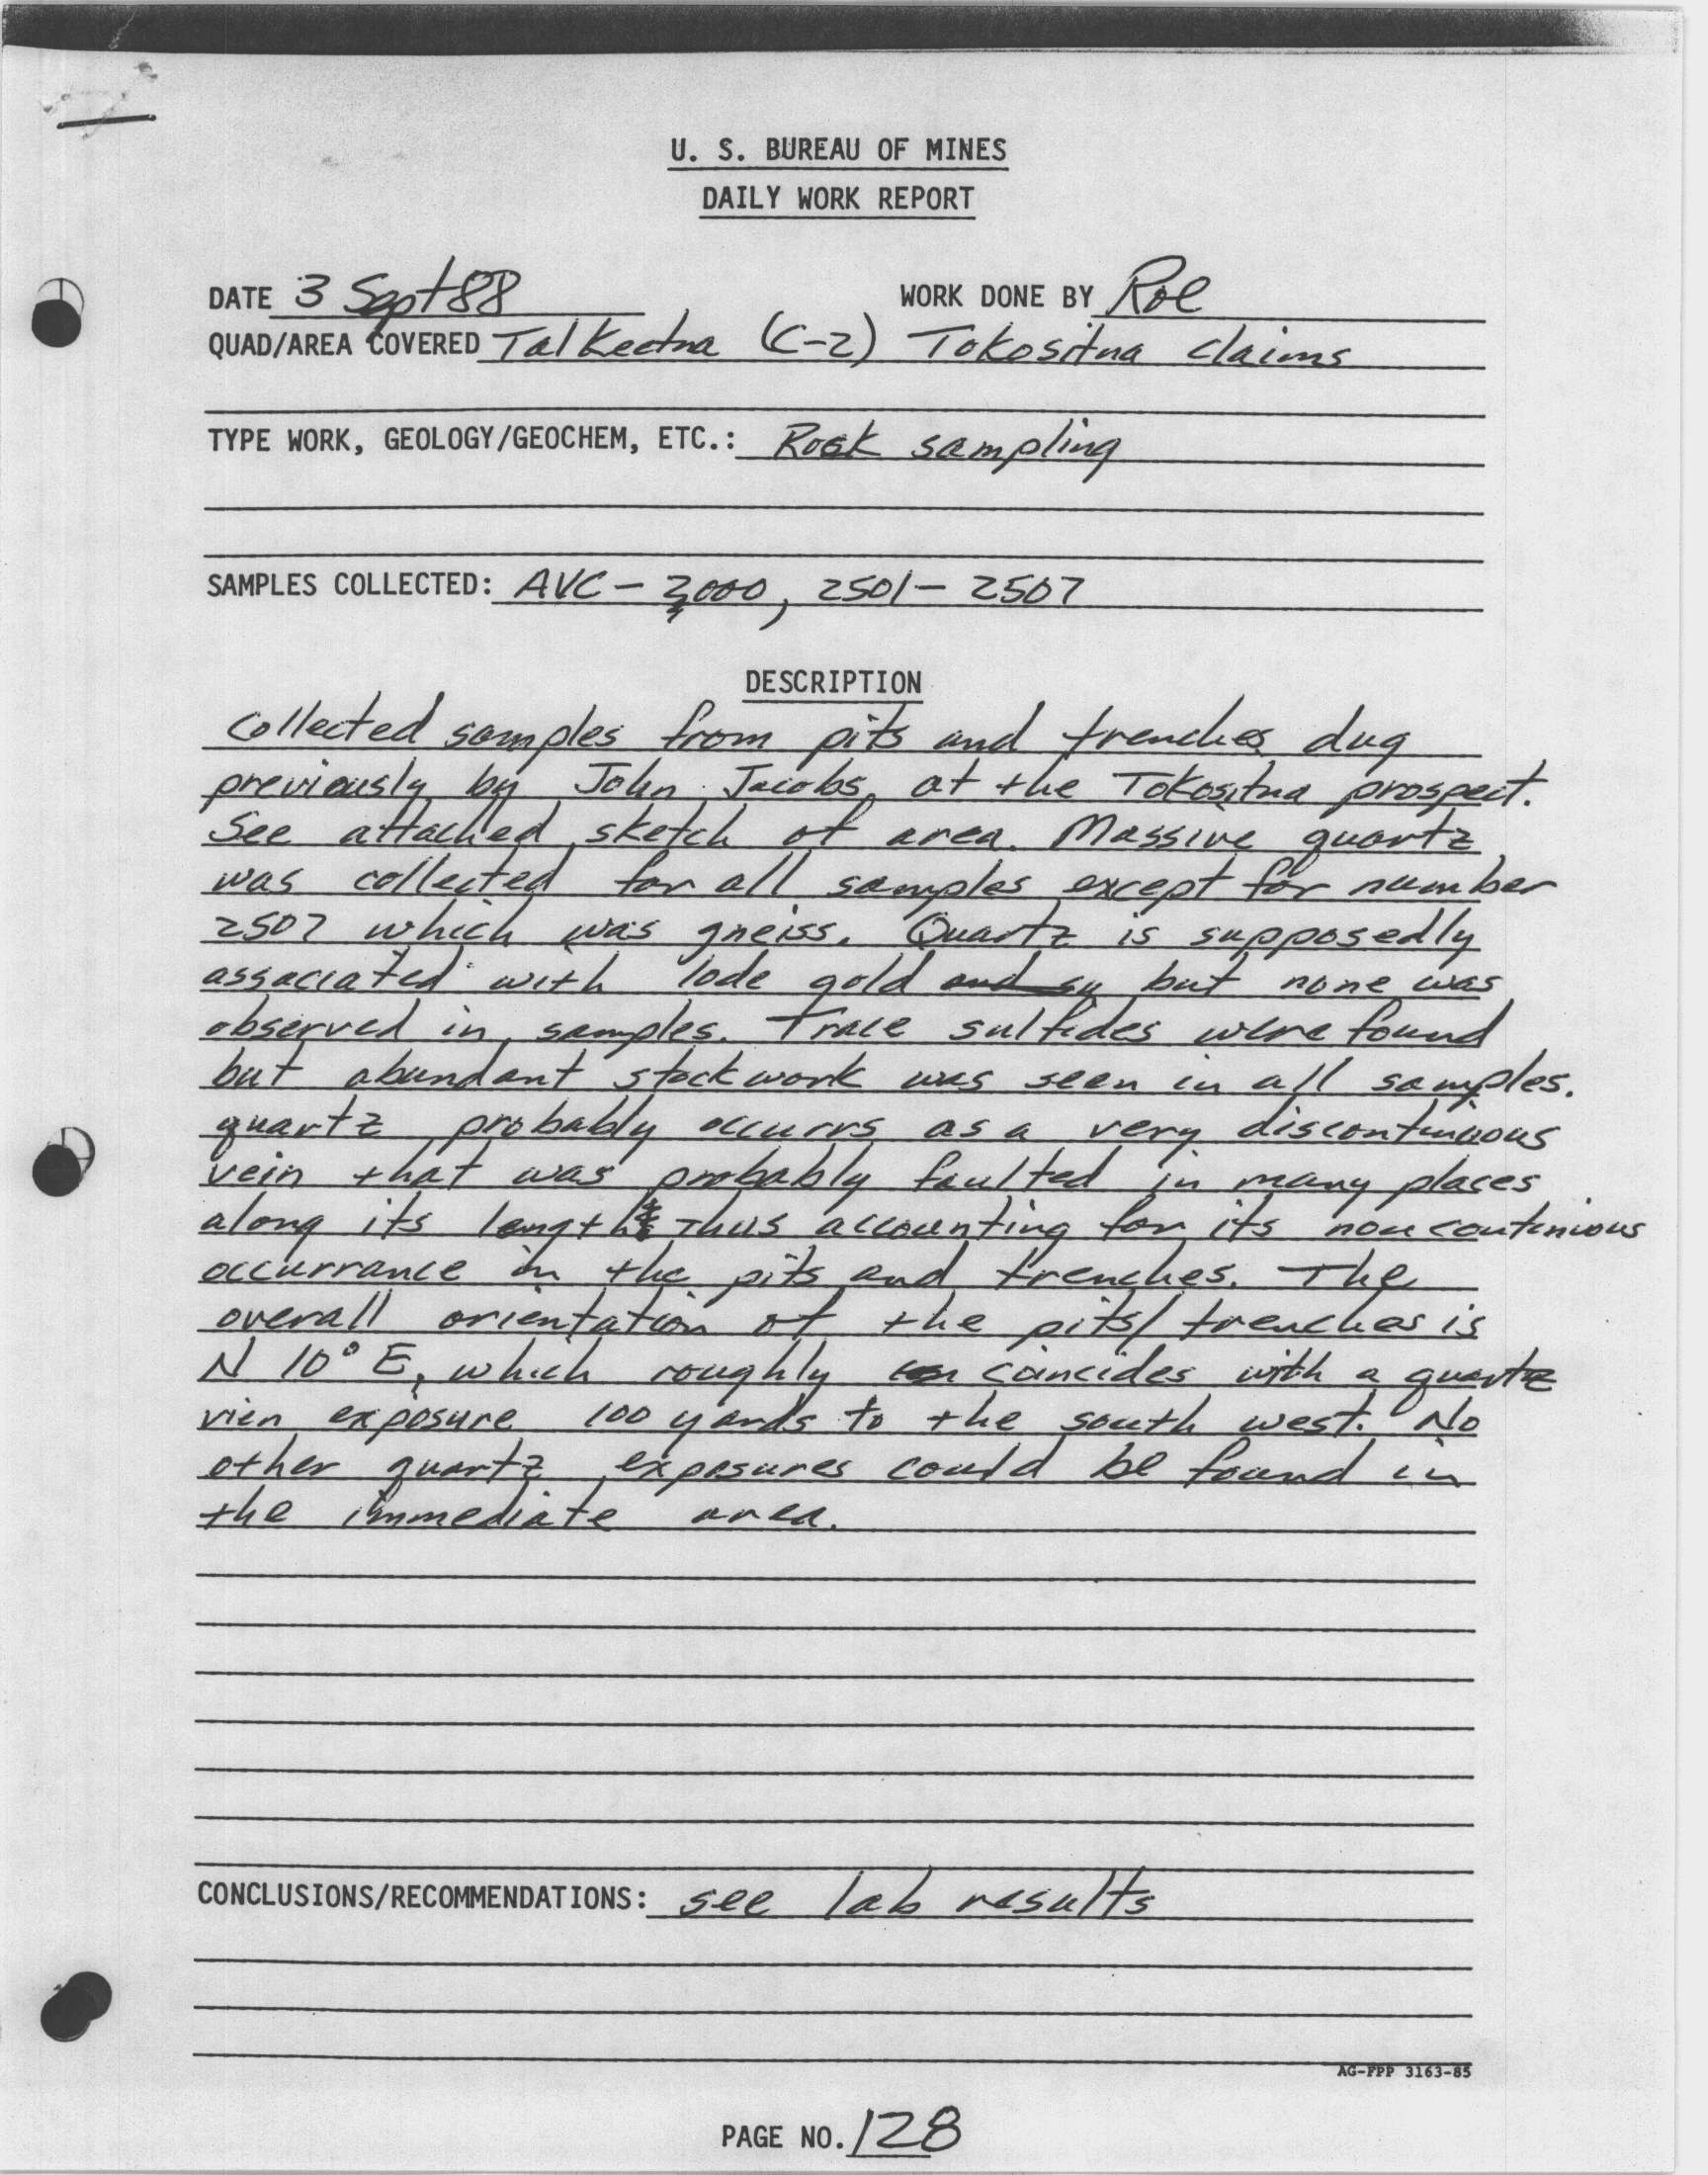 U. S. BUREAU OF MINES
DAILY WORK REPORT
DATE 3 Sept 88 WORK DONE BY Roe
QUAD/AREA COVERED Talkeetna (C-2) Tokositna claims
TYPE WORK, GEOLOGY/GEOCHEM, ETC.: Rock sampling
SAMPLES COLLECTED: AVC - 3000, 2501 - 2507
DESCRIPTION
Collected samples from pits and trenches dug
previously by John Jacobs, at the Tokositna prospect.
See attached sketch of area. Massive quartz
was collected for all samples except for number
2507 which was gneiss. Quartz is supposedly
associated with lode gold but none was
observed in samples. Trace sulfides were found
but abundant stockwork was seen in all samples.
quartz probably occurrs as a very discontinuous
vein that was probably faulted in many places
along its length thus accounting for its noncontinious
occurrance in the pits and trenches. The
overall orientation of the pits/trenches is
N 10° E, which roughly coincides with a quartz
vien exposure 100 yards to the south west. No
other quartz exposures could be found in
the immediate area.
CONCLUSIONS/RECOMMENDATIONS: see lab results
AG-FPP 3163-85
PAGE NO. 128